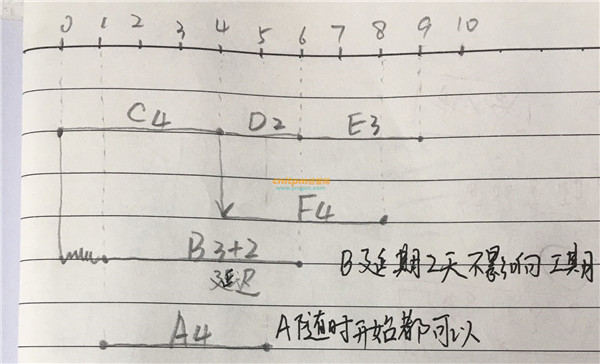 0 1 2 3 4 5 6 7 8 9 10
C4 D2 E3
F4
B3+2
延迟
B延期2天不影响工期
A4
A随时开始都可以